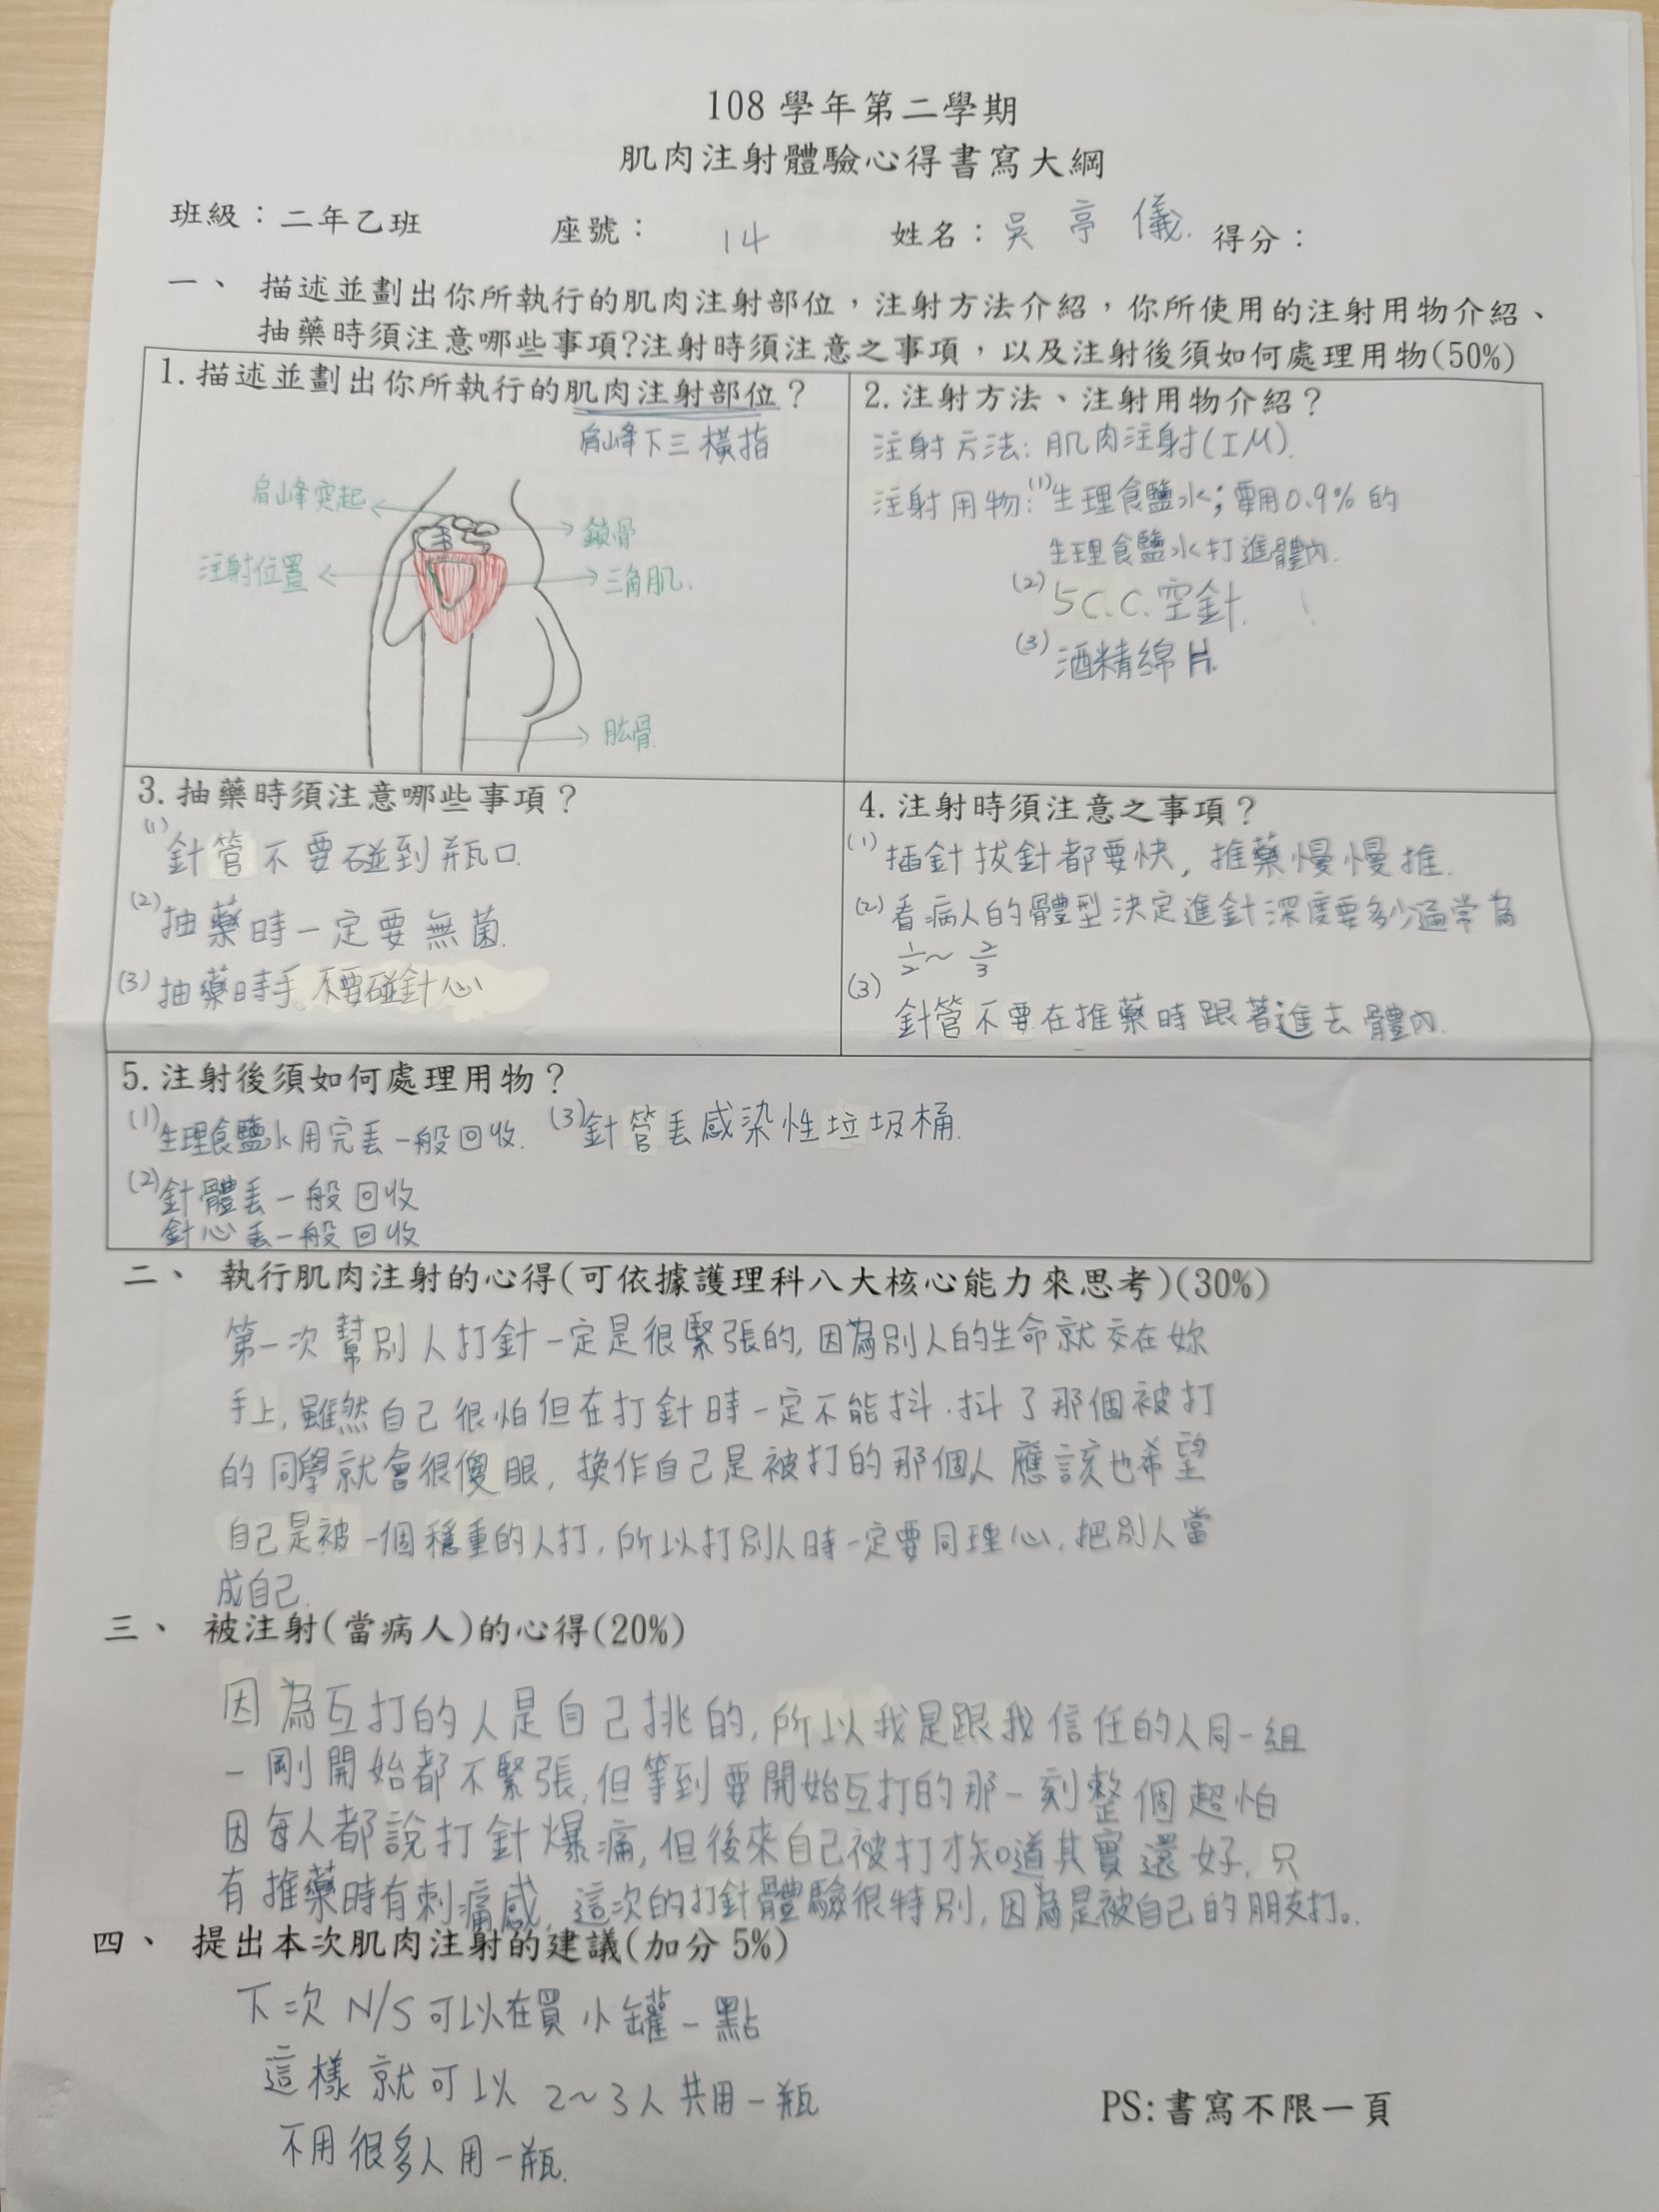 108 學年第二學期
肌肉注射體驗心得書寫大綱
班級：二年乙班 座號： 14 姓名：吳亭儀. 得分：
一、 描述並劃出你所執行的肌肉注射部位，注射方法介紹，你所使用的注射用物介紹、
抽藥時須注意哪些事項?注射時須注意之事項，以及注射後須如何處理用物(50%)
1.描述並劃出你所執行的肌肉注射部位？
肩峰下三橫指
肩峰突起
鎖骨
注射位置
三角肌.
肱骨
2.注射方法、注射用物介紹？
注射方法: 肌肉注射(IM).
注射用物:(1)生理食鹽水;要用0.9%的
生理食鹽水打進體內.
(2) 5C.C.空針.
(3) 酒精綿片.
3.抽藥時須注意哪些事項？
(1)針管不要碰到瓶口.
(2)抽藥時一定要無菌.
(3)抽藥時手不要碰針心
4.注射時須注意之事項？
(1) 插針拔針都要快, 推藥慢慢推.
(2) 看病人的體型決定進針深度要多少通常為
1/2~2/3
(3)
針管不要在推藥時跟著進去體內.
5.注射後須如何處理用物？
(1)生理食鹽水用完丟一般回收. (3)針管丟感染性垃圾桶.
(2)針體丟一般回收
針心丟一般回收
二、 執行肌肉注射的心得(可依據護理科八大核心能力來思考)(30%)
第一次幫別人打針一定是很緊張的,因為別人的生命就交在妳
手上,雖然自己很怕但在打針時一定不能抖.抖了那個被打
的同學就會很傻眼, 換作自己是被打的那個人應該也希望
自己是被一個穩重的人打,所以打別人時一定要同理心,把別人當
成自己.
三、 被注射(當病人)的心得(20%)
因為互打的人是自己挑的,所以我是跟我信任的人同一組
一剛開始都不緊張,但等到要開始互打的那一刻整個超怕
因每人都說打針爆痛,但後來自己被打才知道其實還好,只
有推藥時有刺痛感, 這次的打針體驗很特別,因為是被自己的朋友打。
四、 提出本次肌肉注射的建議(加分 5%)
下次 N/S可以在買小罐一點
這樣就可以 2~3人共用一瓶
不用很多人用一瓶.
PS:書寫不限一頁